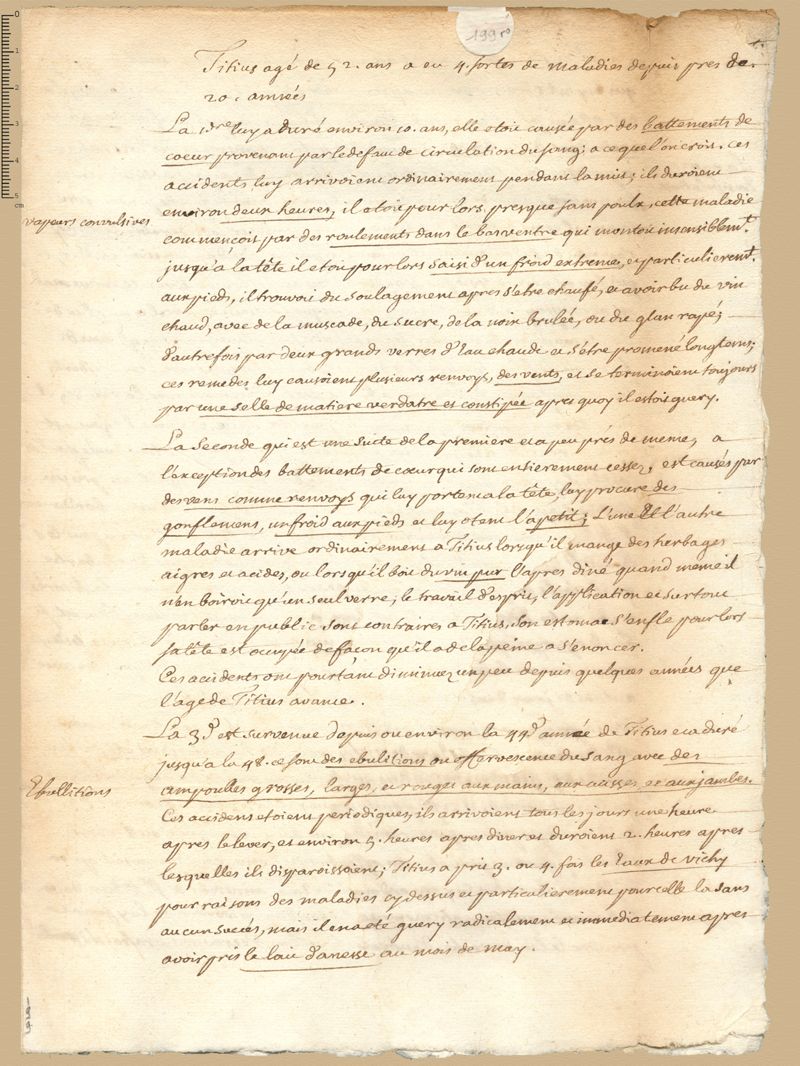 199 r°
Titius agé de 52. ans a eu 4. sortes de maladies depuis pres de
20. années
La 1re luy a duré environ 10. ans, elle etoit causée par des battements de
coeur provenant par le defaut de circulation du sang; a ce que l'on crois. Ces
accidents luy arrivoient ordinairement pendant la nuit; ils duroient
environ deux heures, il etoit pour lors presque sans poulx, cette maladie
vapeurs convulsives
commençois par des roulements dans le bas ventre qui montoit insensiblemt.
jusqu'a la tête il etoit pour lors saisi d'un froid extreme, et particulieremt.
aux pieds, il trouvoit du soulagement apres s'etre chaufé, et avoir bu du vin
chaud, avec de la muscade, du sucre, de la noix brulée, ou du glan rapé;
d'autrefois par deux grands verres d'Eau chaude et s'être promené longtems;
ces remedes luy causoient plusieurs renvoys, des vents, et se terminoient toujours
par une selle de matiere verdatre et constipée apres quoy il estois guery.
La seconde qui est une suite de la premiere et a peu prés de meme, a
l'exception des battements de coeur qui sont entierement cessez, est causés par
des vens comme renvoys qui luy portent a la tête, luy procure des
gonflemens, un froid aux pieds et luy otent l'apetit; L'une et l'autre
maladie arrive ordinairement a Titius lorsqu'il mange des herbages
aigres et acides, ou lorsqu'il boit du vin pur l'apres diné quand meme il
n'en boiroit qu'un seul verre; le travail d'esprit, l'application et surtout
parler en public sont contraires a Titius, son estomac s'enfle pour lors
sa tête est occupée de façon qu'il a de la peine a s'enoncer.
Ces accidents ont pourtant diminuez un peu depuis quelques années que
l'age de Titius avance.
La 3e est survenue depuis ou environ la 44e année de Titius et a duré
jusqu'a la 48. ce sont des ebulitions ou effervescence du sang avec des
Ebullitions
ampoulles grosses, larges, et rouges aux mains, aux cuisses et aux jambes.
Ces accidens etoient periodiques, ils arrivoient tous les jours une heure
apres le lever, et environ 5. heures apres diner et duroient 2. heures apres
lesquelles ils disparoissoient; Titius a pris 3. ou 4. fois les Eaux de vichy
pour raisons des maladies cy dessus et particulierement pour celle la sans
aucun succés, mais il en a eté guery radicalement et immediatement apres
avoir pris le lait d'anesse au mois de may.